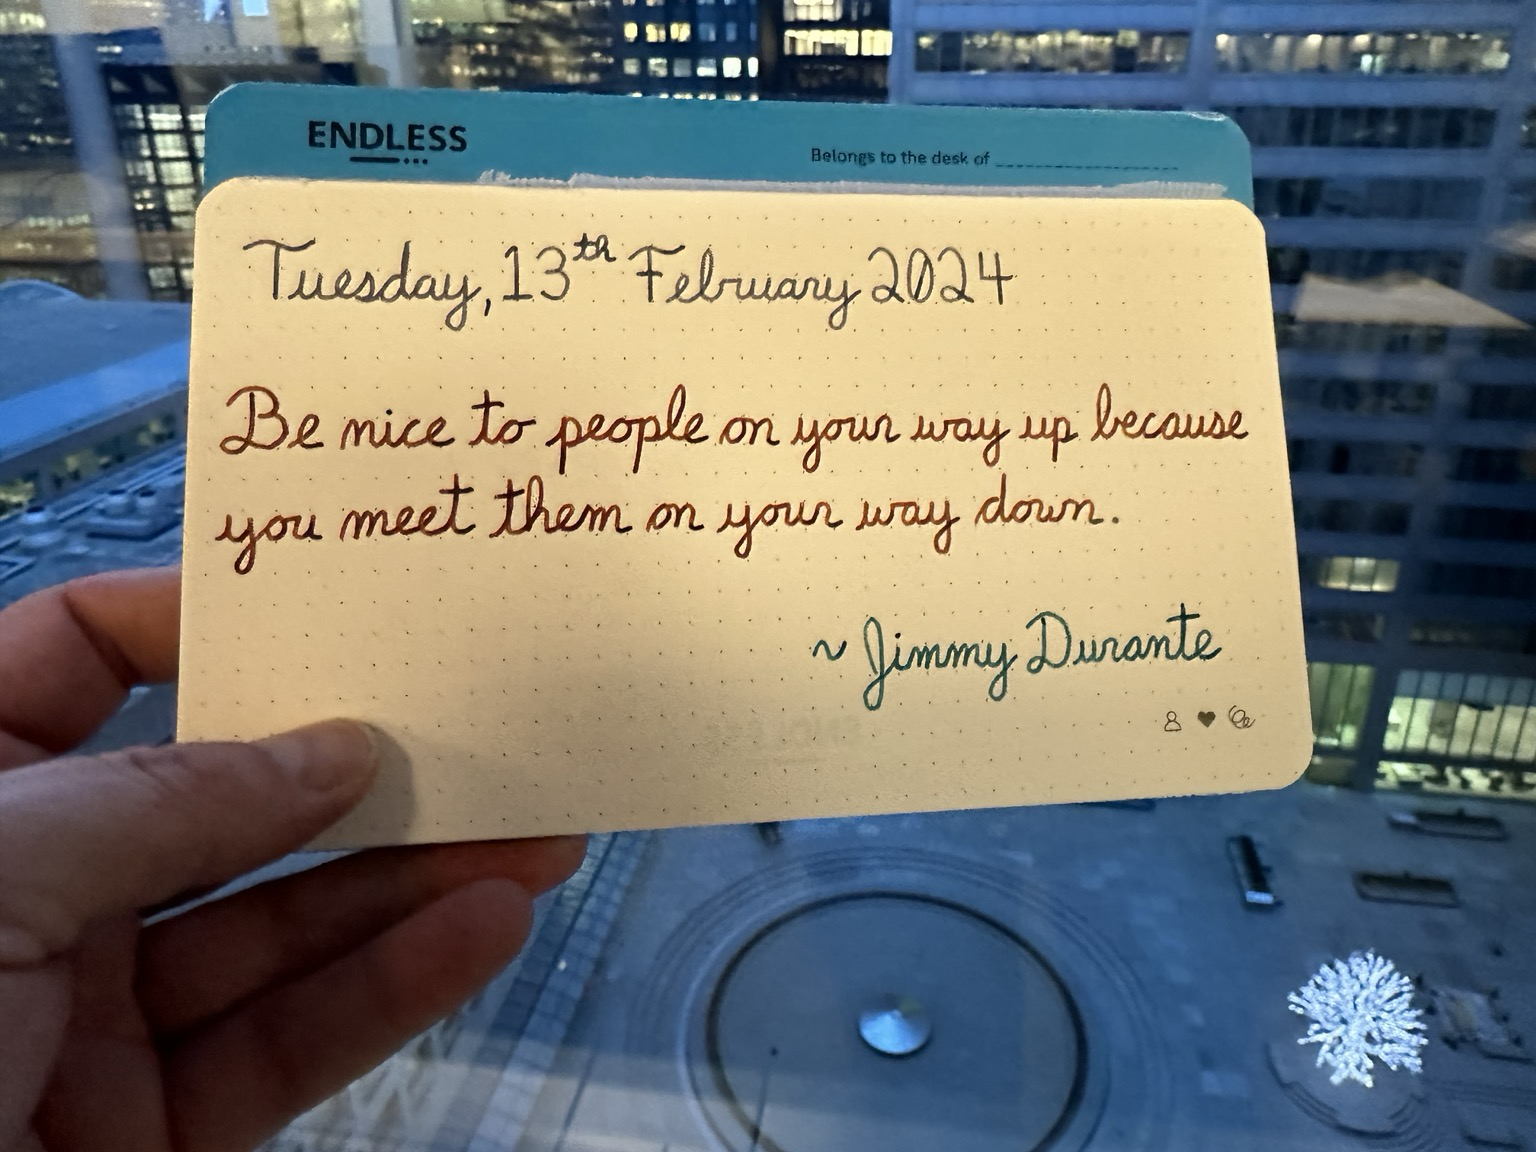 ENDLESS
Belongs to the desk of
Tuesday, 13th February 2024
Be nice to people on your way up because
you meet them on your way down.
~ Jimmy Durante